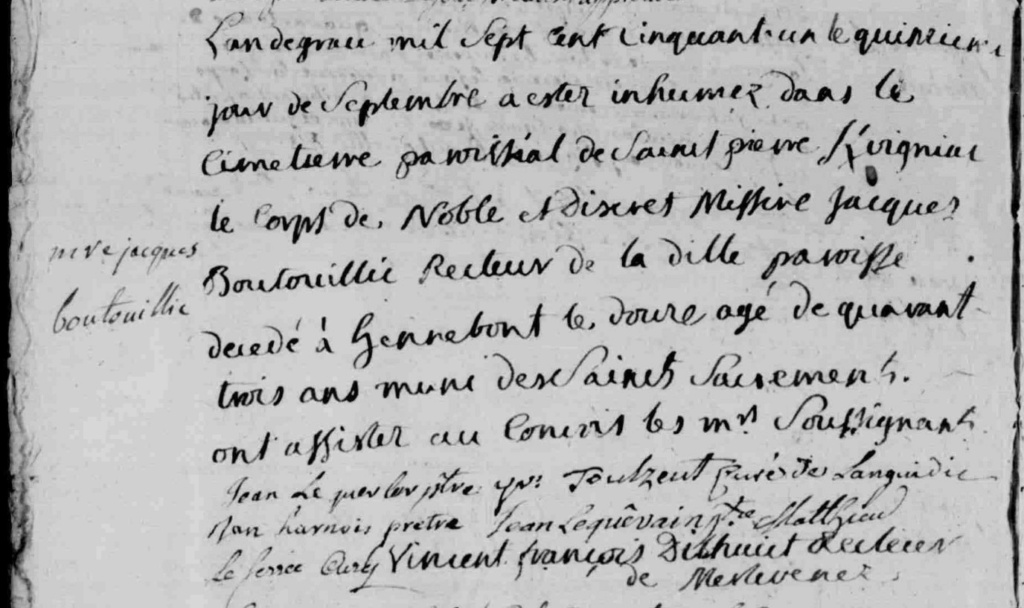 Landegrace mil Sept cent cinquant-un le quinzieme
jour de Septembre a ester inhumez dans le
Cimetierre paroissial de Saint pierre K/vigniac
le Corps de Noble et discret Missire Jacques
mre jacques
boutouillic
Boutouillic Recteur de la ditte paroisse
decedé à hennebont le douze agé de quarant
trois ans muni des Saincts Sacrements.
ont assister au Convois les mrs Soussignants
Jean Le prtre yves Toulzeut Curé de Languidic
Jan harnois pretre Jean Lequêvain ptre Matthieu
Le ferrec Curé Vincent françois Dishuict Recteur
de Merlevenez